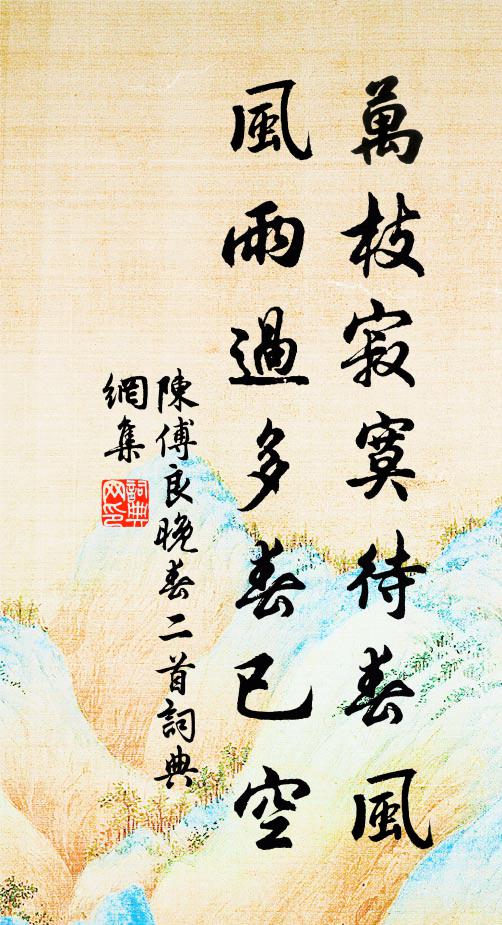 萬枝寂寞待春風
風雨過多春已空
陳傅良晚春二首詞典
網集
詞典
网印